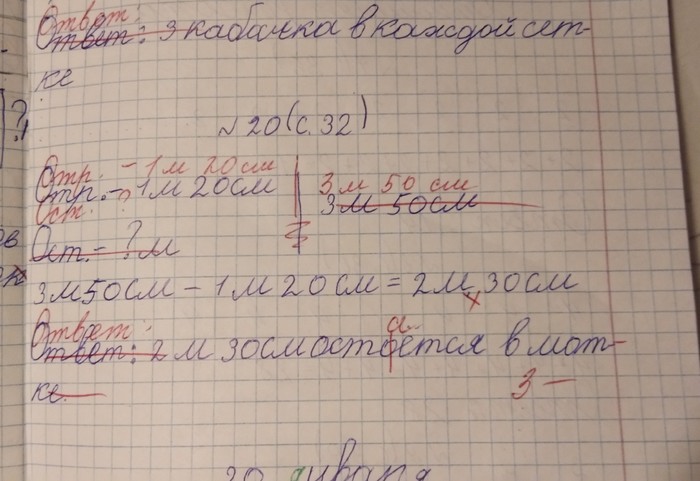 Ответ:
Ответ: 3 кабачка в каждой сет-
ке
№20(с.32)
Отр. - 1м 20см
Отр. - 1м 20см
3м 50см
3м 50см
Ост. ?
Ост. - ? м
3м50см - 1м20см = 2м 30см
Ответ:
а
Ответ: 2м 30см остоётся в мот-
ке.
3-
20 января